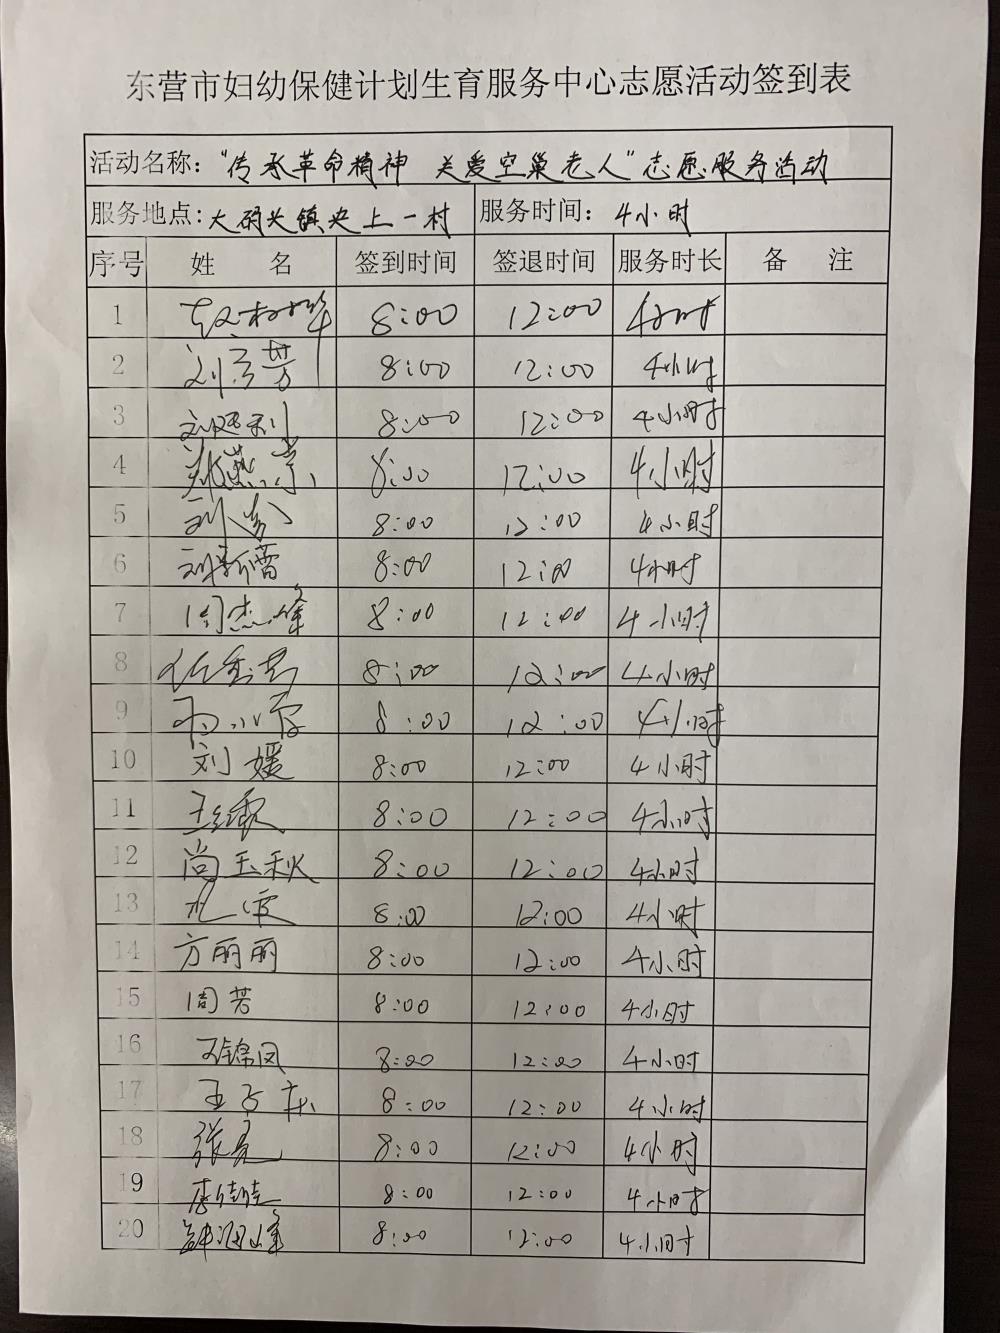 东营市妇幼保健计划生育服务中心志愿活动签到表
活动名称："传承革命精神 关爱空巢老人"志愿服务活动
服务地点：大码头镇央上一村 服务时间：4小时
序号 姓 名 签到时间 签退时间 服务时长 备 注
1 8:00 12:00 4小时
2 刘彦芳 8:00 12:00 4小时
3 8:00 12:00 4小时
4 8:00 12:00 4小时
5 8:00 12:00 4小时
6 刘新蕾 8:00 12:00 4小时
7 周杰峰 8:00 12:00 4小时
8 8:00 12:00 4小时
9 8:00 12:00 4小时
10 刘媛 8:00 12:00 4小时
11 8:00 12:00 4小时
12 尚玉秋 8:00 12:00 4小时
13 8:00 12:00 4小时
14 方丽丽 8:00 12:00 4小时
15 周芳 8:00 12:00 4小时
16 王锦凤 8:00 12:00 4小时
17 8:00 12:00 4小时
18 张亮 8:00 12:00 4小时
19 8:00 12:00 4小时
20 8:00 12:00 4小时